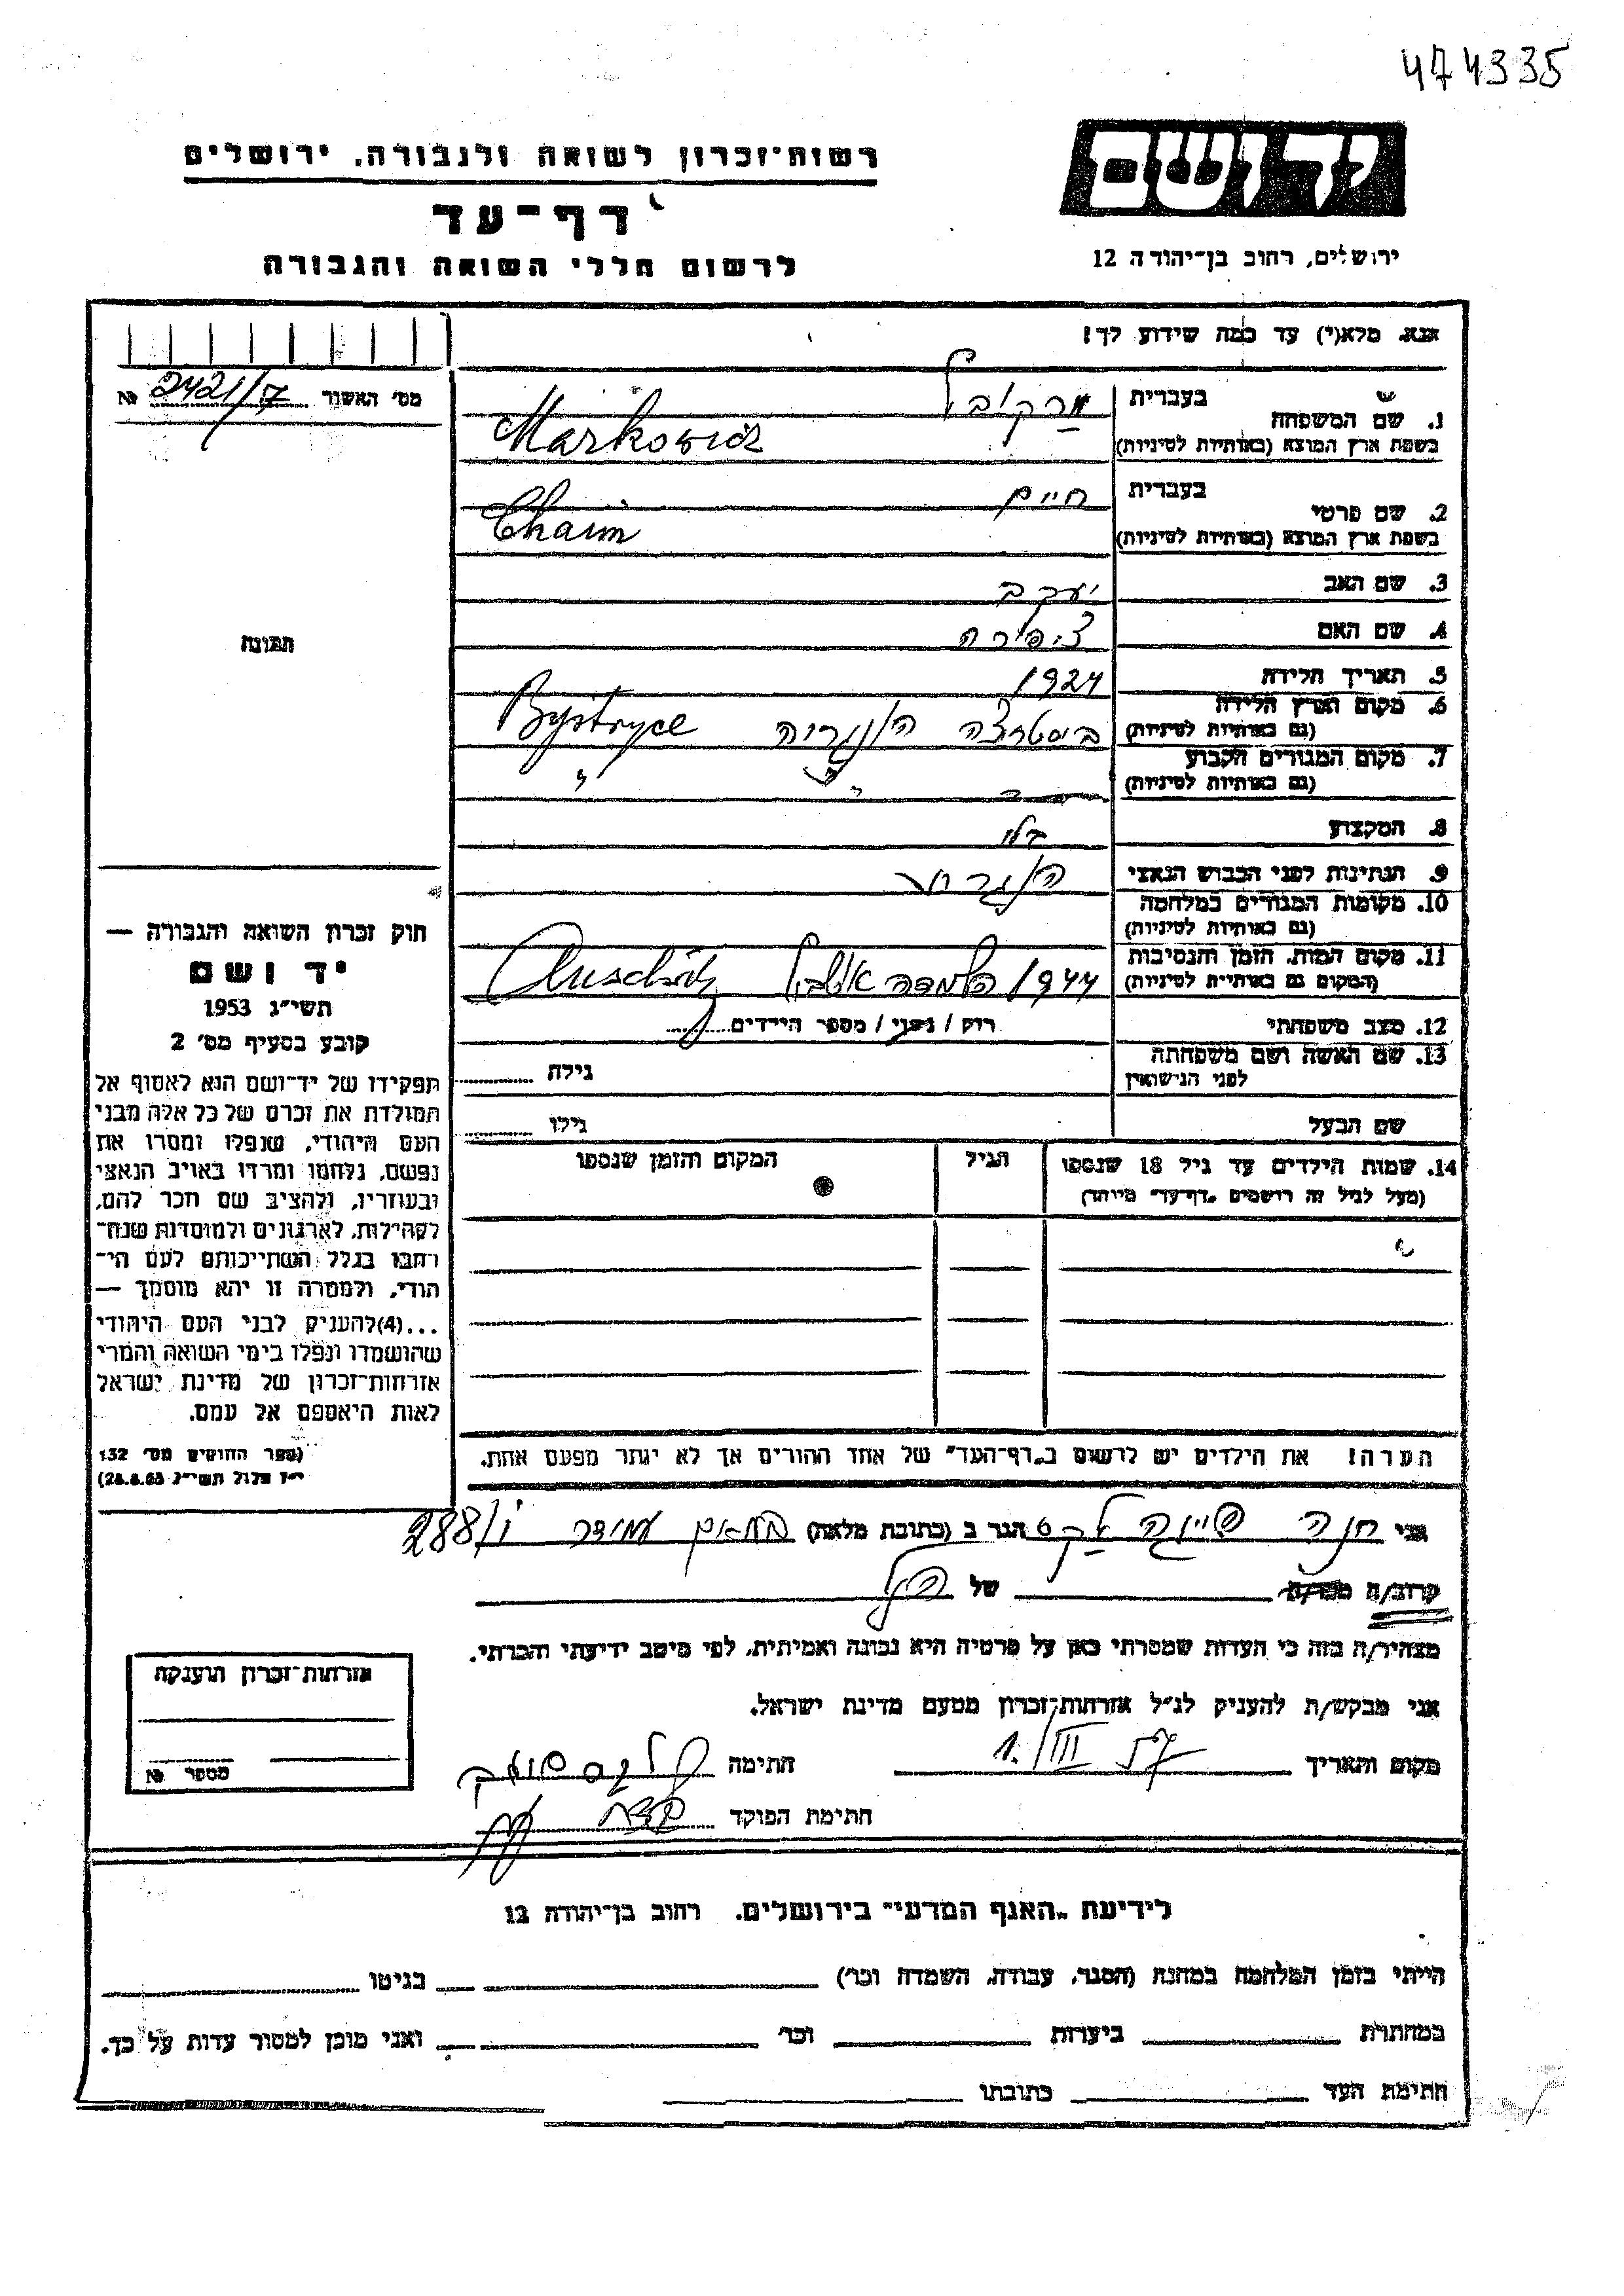 474335
יד ושם
ירושלים, רחוב בן-יהודה 12
רשות-זכרון לשואה ולגבורה, ירושלים
דף-עד
לרשום חללי השואה והגבורה
אנא, מלא(י) עד כמה שידוע לך!
מס' האשור 2421/7 №
תמונה
1. שם המשפחה
בעברית מרקוביץ
בשפת ארץ המוצא (באותיות לטיניות) Markowicz
2. שם פרטי
בעברית חיים
בשפת ארץ המוצא (באותיות לטיניות) Chaim
3. שם האב יעקב
4. שם האם ציפורה
5. תאריך הלידה 1924
6. מקום וארץ הלידה
(גם באותיות לטיניות) ביסטריצה הונגריה Bystryce
7. מקום המגורים הקבוע
(גם באותיות לטיניות) " "
8. המקצוע
9. הנתינות לפני הכבוש הנאצי
10. מקומות המגורים במלחמה
(גם באותיות לטיניות)
11. מקום המות, הזמן והנסיבות
(המקום גם באותיות לטיניות) 1944 השמדה אושביץ Auschwitz
12. מצב משפחתי רווק / נשוי / מספר הילדים
13. שם האשה ושם משפחתה
לפני הנישואין גילה
שם הבעל גילו
14. שמות הילדים עד גיל 18 שנספו
(מעל לגיל זה רושמים "דף-עד" מיוחד)
הגיל
המקום והזמן שנספו
הערה! את הילדים יש לרשום ב"דף-העד" של אחד ההורים אך לא יותר מפעם אחת.
חוק זכרון השואה והגבורה —
יד ושם
תשי"ג 1953
קובע בסעיף מס' 2
תפקידו של יד-ושם הוא לאסוף אל
המולדת את זכרם של כל אלה מבני
העם היהודי, שנפלו ומסרו את
נפשם, נלחמו ומרדו באויב הנאצי
ובעוזריו, ולהציב שם וזכר להם,
לקהילות, לארגונים ולמוסדות שנח-
רבו בגלל השתייכותם לעם הי-
הודי, ולמטרה זו יהא מוסמך —
...(4)להעניק לבני העם היהודי
שהושמדו ונפלו בימי השואה והמרי
אזרחות-זכרון של מדינת ישראל
לאות היאספם אל עמם.
(ספר החוקים מס' 132
י"ז אלול תשי"ג 28.8.53)
אני חנה הגר ב (כתובת מלאה) עמידר 288/
קרוב/ה מכר/ה של
מצהיר/ה בזה כי העדות שמסרתי כאן על פרטיה היא נכונה ואמיתית, לפי מיטב ידיעתי והכרתי.
אני מבקש/ת להעניק לנ"ל אזרחות-זכרון מטעם מדינת ישראל.
מקום ותאריך 1./III 57 חתימה
חתימת הפוקד
אזרחות-זכרון הוענקה
מספר №
לידיעת "האגף המדעי" בירושלים. רחוב בן-יהודה 12
הייתי בזמן המלחמה במחנה (הסגר, עבודה, השמדה וכו') בגיטו
במחתרת ביערות וכו' ואני מוכן למסור עדות על כך.
חתימת העד כתובתו